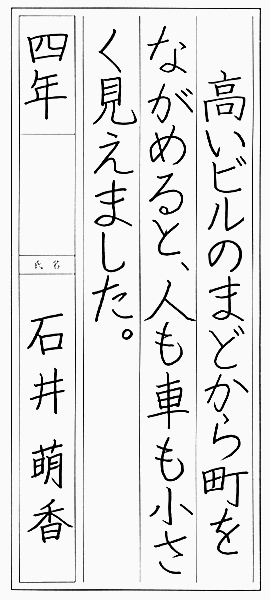 高いビルのまどから町を
ながめると、人も車も小さ
く見えました。
四年
氏名
石井萌香